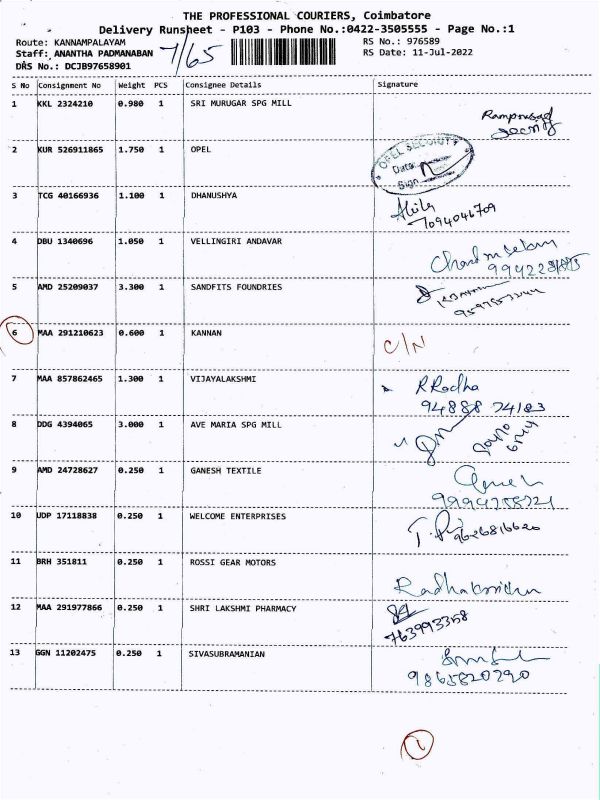 THE PROFESSIONAL COURIERS, Coimbatore
Delivery Runsheet - P103 - Phone No.:0422-3505555 - Page No.:1
Route: KANNAMPALAYAM
RS No.: 976589
Staff: ANANTHA PADMANABAN
7/65
RS Date: 11-Jul-2022
DRS No.: DCJB97658901
S No Consignment No Weight PCS Consignee Details Signature
1 KKL 2324210 0.980 1 SRI MURUGAR SPG MILL
2 KUR 526911865 1.750 1 OPEL OPEL SECURITY
Date
Sign
3 TCG 40166936 1.100 1 DHANUSHYA
7094046709
4 DBU 1340696 1.050 1 VELLINGIRI ANDAVAR
5 AMD 25209037 3.300 1 SANDFITS FOUNDRIES
6 MAA 291210623 0.600 1 KANNAN C/N
7 MAA 857862465 1.300 1 VIJAYALAKSHMI R Radha
94888 74183
8 DDG 4394065 3.000 1 AVE MARIA SPG MILL
9 AMD 24728627 0.250 1 GANESH TEXTILE
10 UDP 17118838 0.250 1 WELCOME ENTERPRISES
9626816620
11 BRH 351811 0.250 1 ROSSI GEAR MOTORS
12 MAA 291977866 0.250 1 SHRI LAKSHMI PHARMACY
763993358
13 GGN 11202475 0.250 1 SIVASUBRAMANIAN
9865820290
1